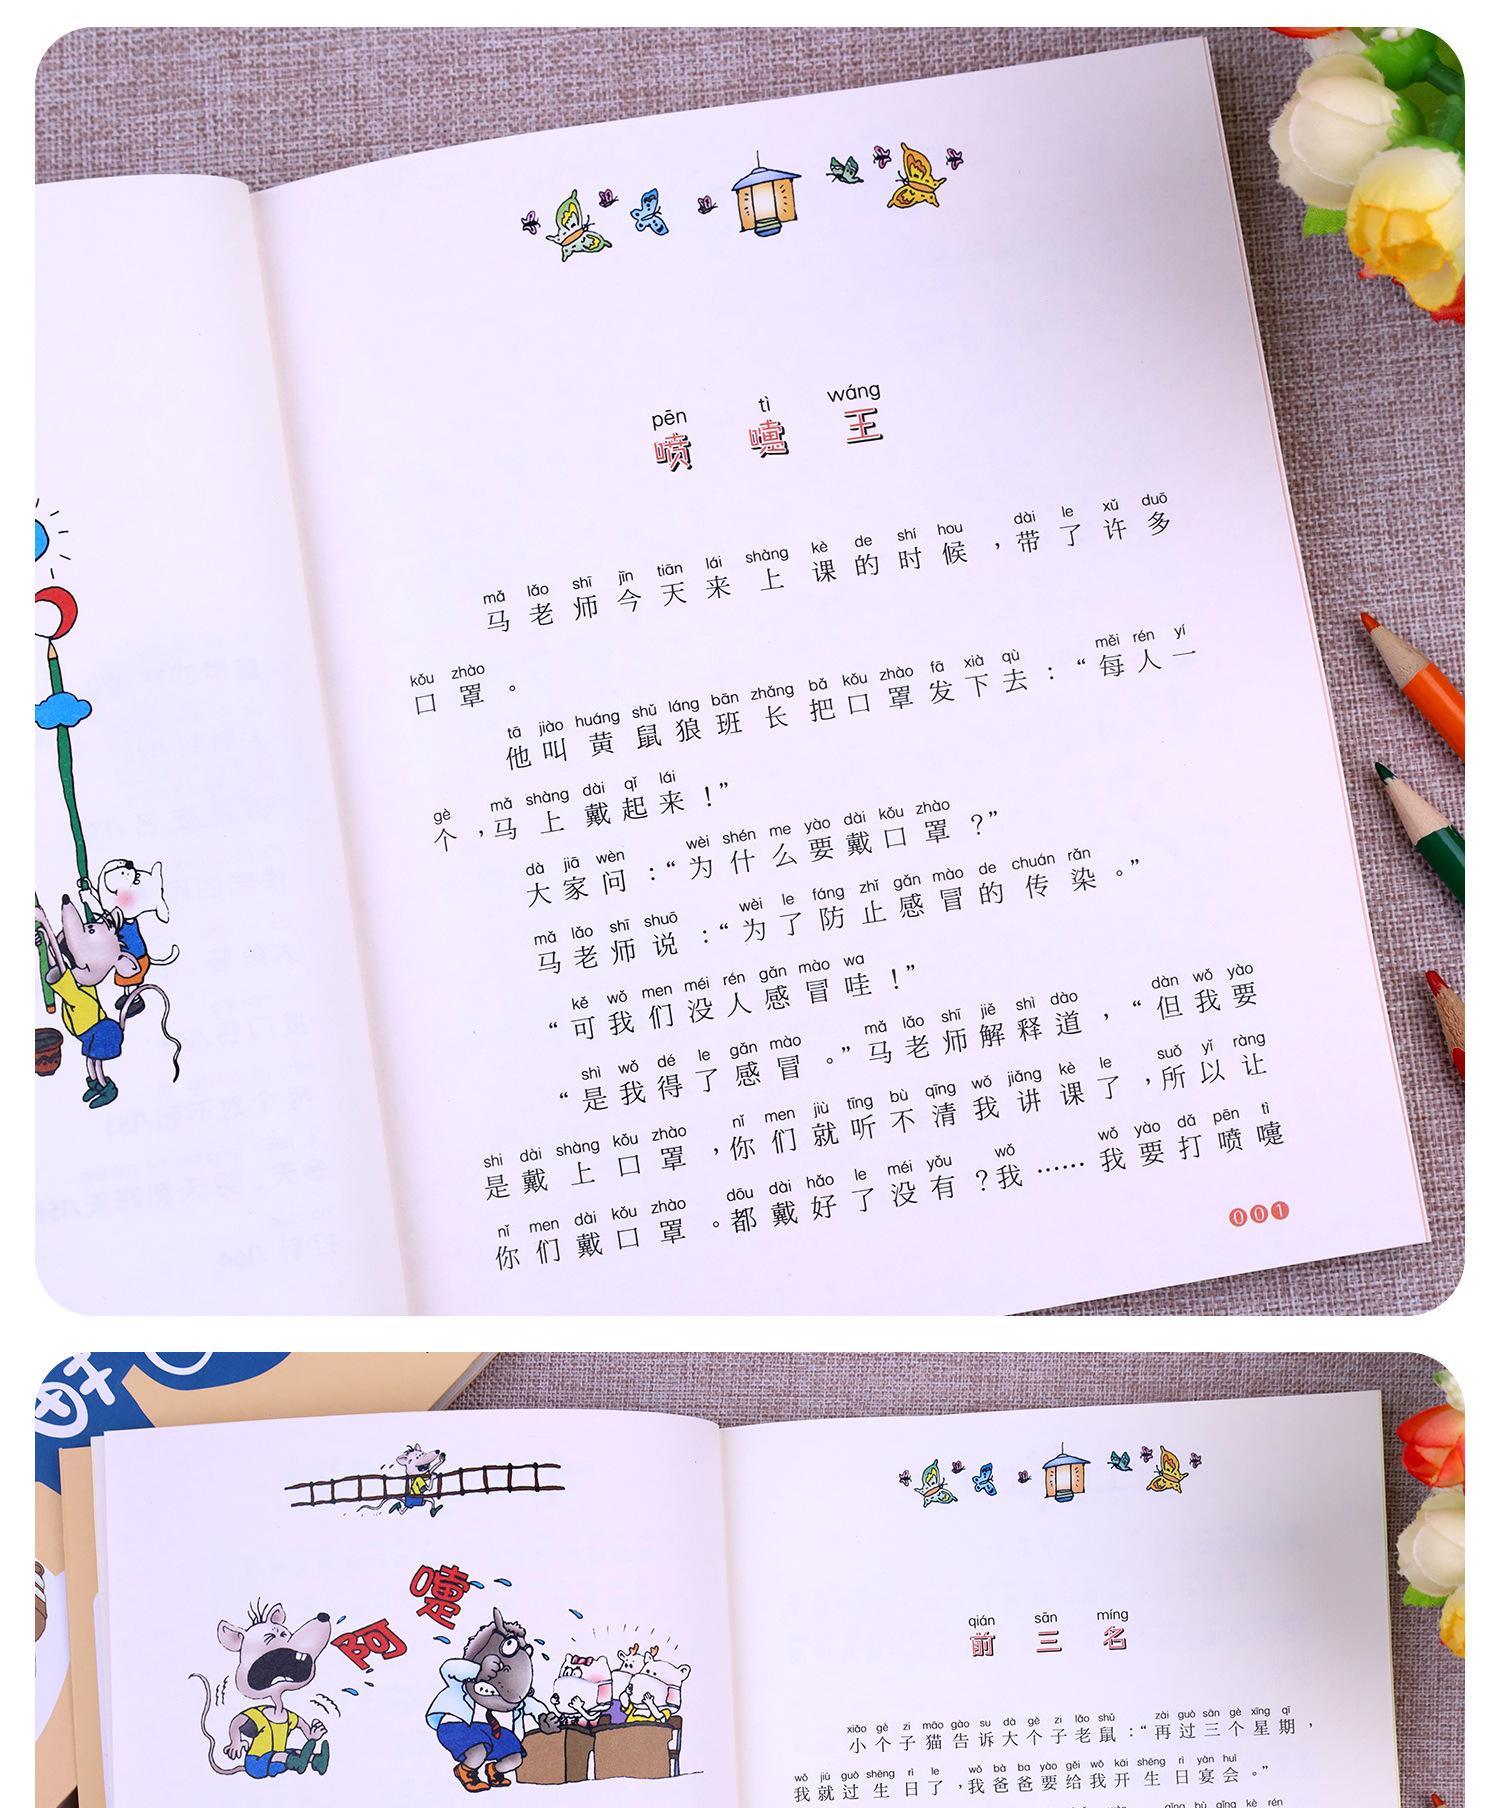 pēn tì wáng
喷嚏王
mǎ lǎo shī jīn tiān lái shàng kè de shí hou dài le xǔ duō
马老师今天来上课的时候，带了许多
kǒu zhào
口罩。
tā jiào huáng shǔ láng bān zhǎng bǎ kǒu zhào fā xià qù měi rén yí
他叫黄鼠狼班长把口罩发下去：“每人一
gè mǎ shàng dài qǐ lái
个，马上戴起来！”
dà jiā wèn wèi shén me yào dài kǒu zhào
大家问：“为什么要戴口罩？”
mǎ lǎo shī shuō wèi le fáng zhǐ gǎn mào de chuán rǎn
马老师说：“为了防止感冒的传染。”
kě wǒ men méi rén gǎn mào wa
“可我们没人感冒哇！”
shì wǒ dé le gǎn mào mǎ lǎo shī jiě shì dào dàn wǒ yào
“是我得了感冒。”马老师解释道，“但我要
shi dài shàng kǒu zhào nǐ men jiù tīng bù qīng wǒ jiǎng kè le suǒ yǐ ràng
是戴上口罩，你们就听不清我讲课了，所以让
nǐ men dài kǒu zhào dōu dài hǎo le méi yǒu wǒ wǒ yào dǎ pēn tì
你们戴口罩。都戴好了没有？我……我要打喷嚏
001
阿嚏
qián sān míng
前三名
xiǎo gè zi māo gào su dà gè zi lǎo shǔ zài guò sān gè xīng qī
小个子猫告诉大个子老鼠：“再过三个星期，
wǒ jiù guò shēng rì le wǒ bà ba yào gěi wǒ kāi shēng rì yàn huì
我就过生日了，我爸爸要给我开生日宴会。”
qǐng bù qǐng kè rén